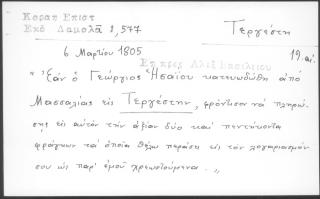 Κοραη Επιστ
Εκδ Δαμαλᾶ 2, 577
Τεργέστη
6 Μαρτίου 1805
19 αἰ.
Επ. πρὸς Ἀλεξ Βασιλείου
"Ἐὰν ὁ Γεώργιος Ἡσαΐου κατευωδώθη ἀπὸ
Μασσαλίας εἰς Τεργέστην, φρόντισον νὰ πληρώ-
σῃς εἰς αὐτὸν τὴν ἀξίαν δύο καὶ πεντήκοντα
φράγκων τὰ ὁποῖα θέλω περάσει εἰς τὸν λογαριασμόν
σου ὡς παρ' ἐμοῦ χρεωστούμενα. "